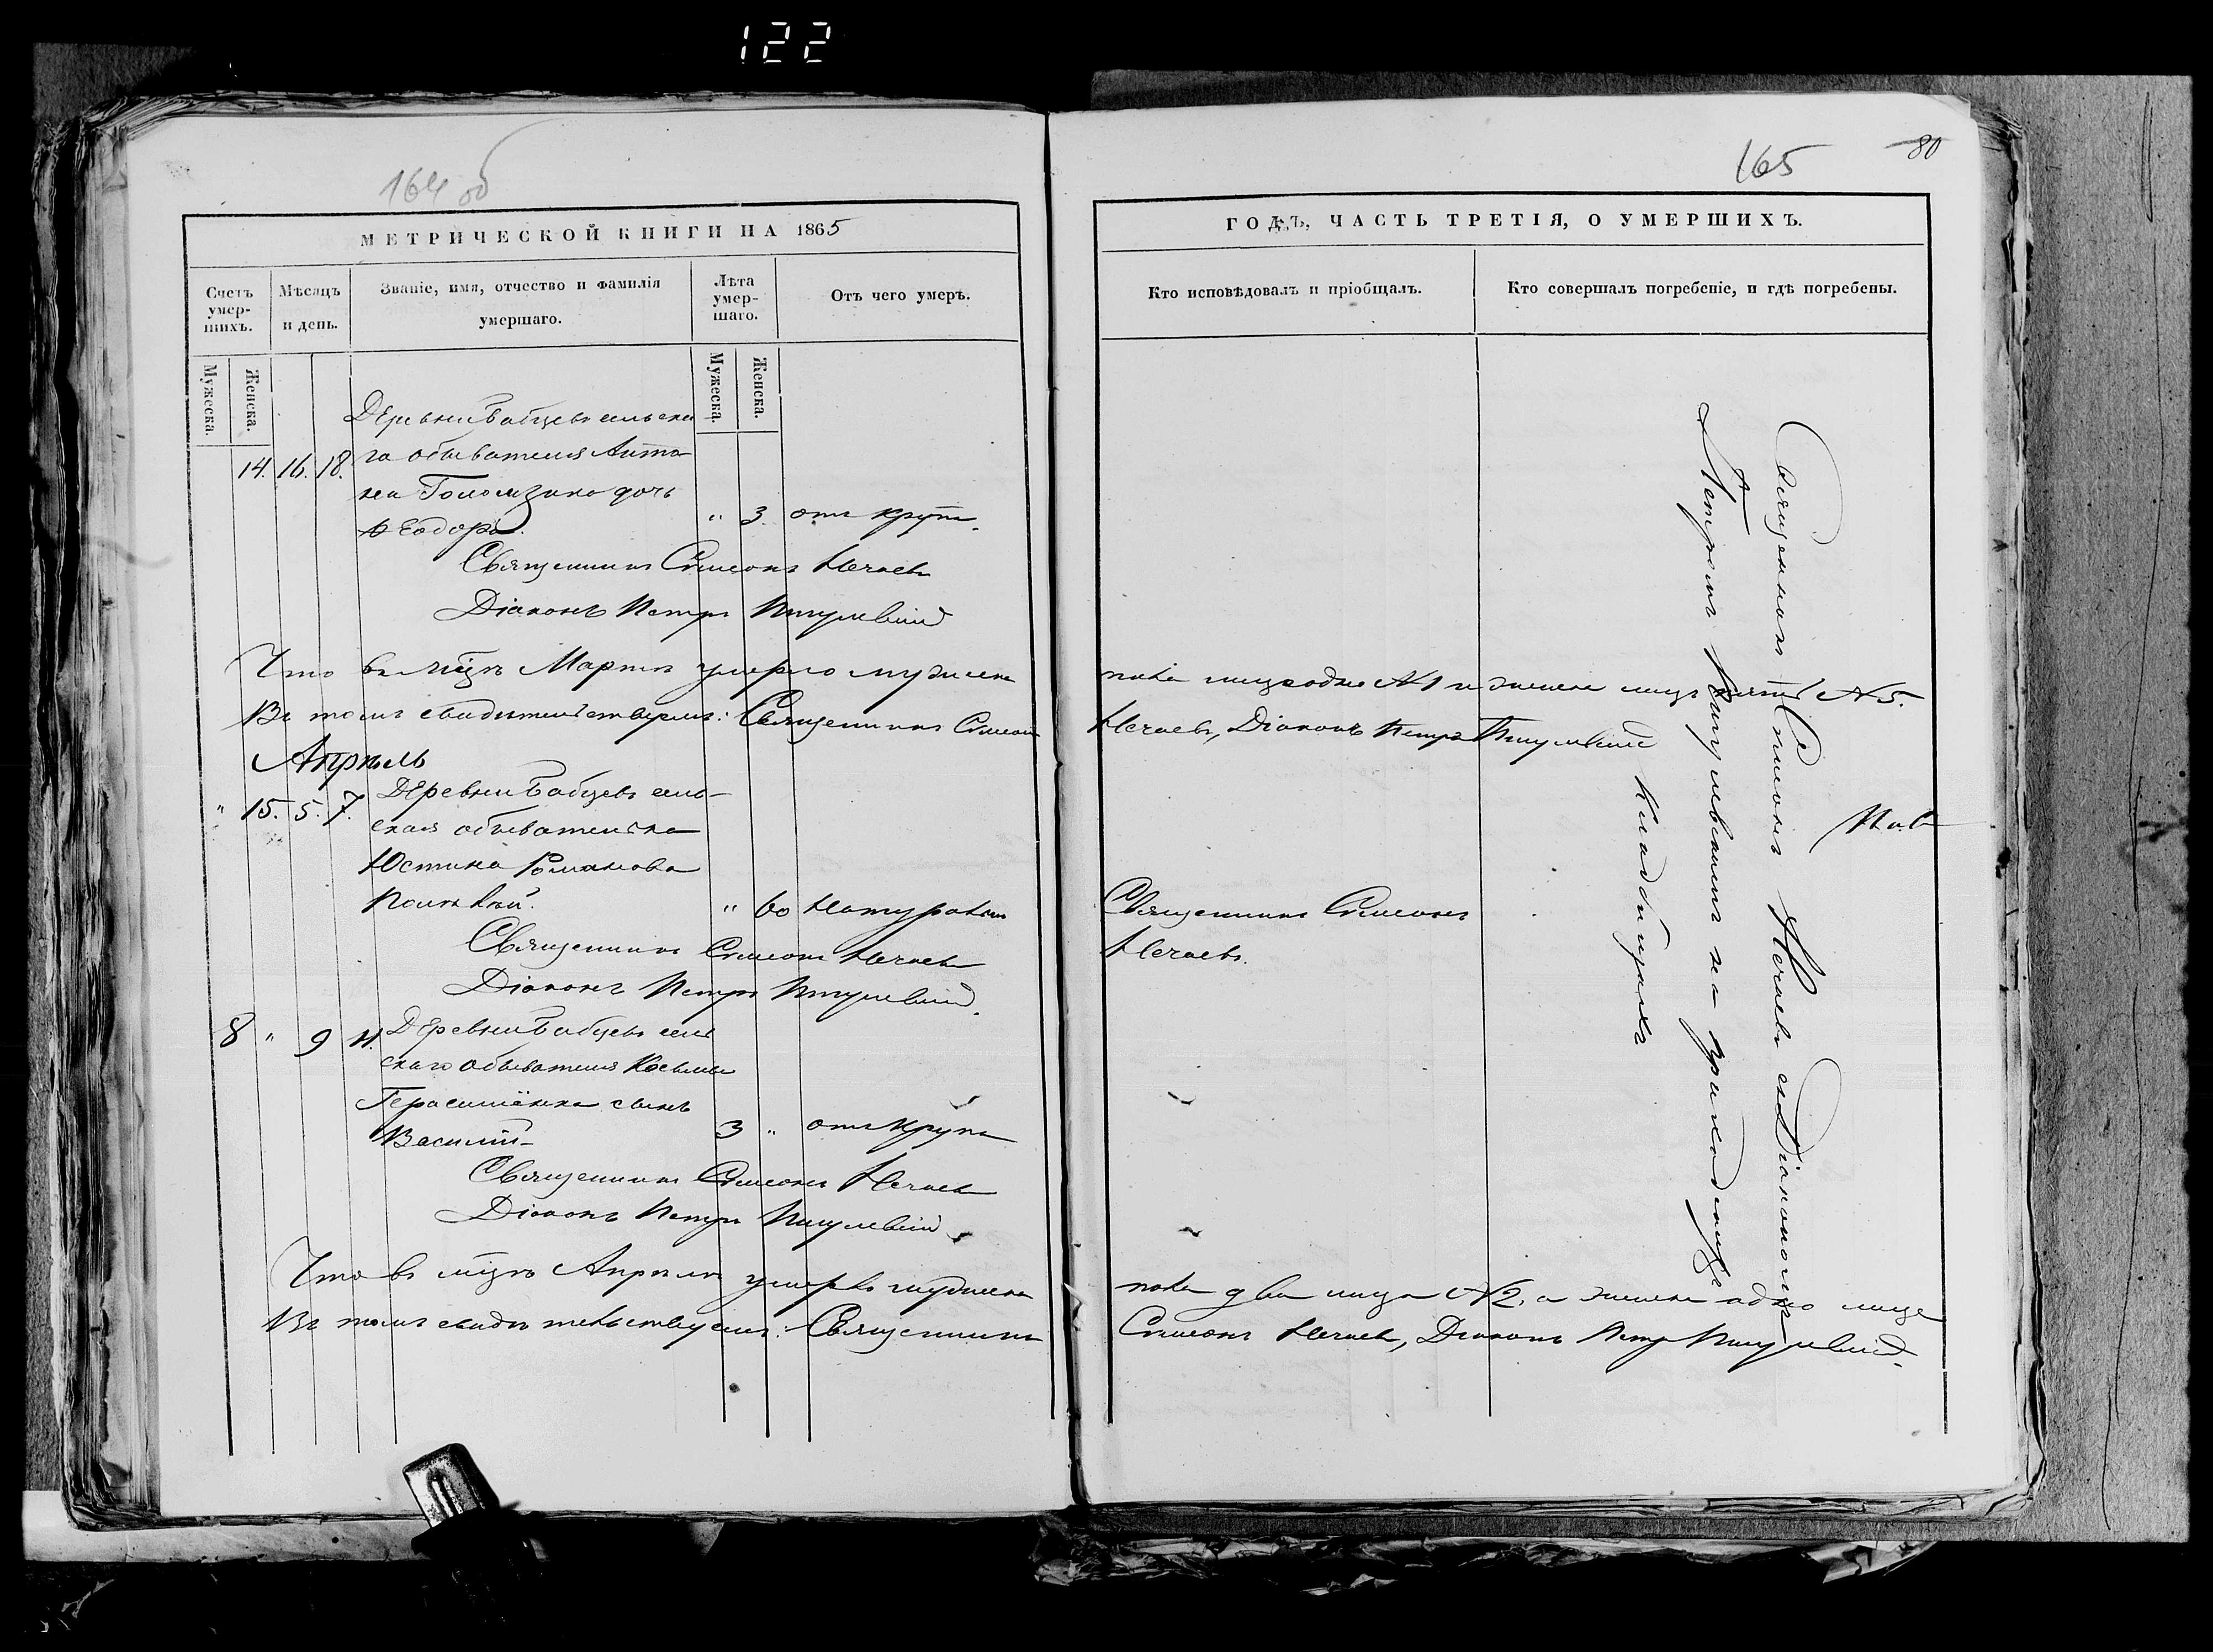 122
164 об
МЕТРИЧЕСКОЙ КНИГИ НА 1865
Счетъ умер-шихъ.
Мѣсяцъ и день.
Званіе, имя, отчество и фамилія умершаго.
Лѣта умер-шаго.
Отъ чего умеръ.
Мужеска.
Женска.
Мужеска.
Женска.
Деревни Бабцевъ сельска
14. 16. 18. го обывателя Анто
на Голомзика дочь
Ѳеодора. " 3. отъ крупа.
Священникъ Симеонъ Нечаевъ
Діаконъ Петръ
Что въ мѣцѣ Мартѣ умерло мужеска
Въ томъ свидѣтельствуемъ: Священникъ Симеонъ
Апрѣль
" 15. 5. 7. Деревни Бабцевъ сель-
ская обывателька
Юстина Романова
" 60 Натурально
Священникъ Симеонъ Нечаевъ
Діаконъ Петръ
8 " 9 11. Деревни Бабцевъ сель
скаго обывателя Косьмы
Герасимёнка сынъ
Василій 3 " отъ крупа
Священникъ Симеонъ Нечаевъ
Діаконъ Петръ
Что въ мѣцѣ Апрѣлѣ умерло мужеска
Въ томъ свидѣтельствуемъ: Священникъ
165
80
ГОДЪ, ЧАСТЬ ТРЕТІЯ, О УМЕРШИХЪ.
Кто исповѣдовалъ и пріобщалъ.
Кто совершалъ погребеніе, и гдѣ погребены.
пола лице одно №1 и женска лицъ пять №5.
Нечаевъ, Діаконъ Петръ
Священникъ Симеонъ
Нечаевъ.
Священникъ Симеонъ Нечаевъ съ Діакономъ
Петромъ на приходскихъ
кладбищахъ
пола два лица №2. а женска одно лице
Симеонъ Нечаевъ, Діаконъ Петръ